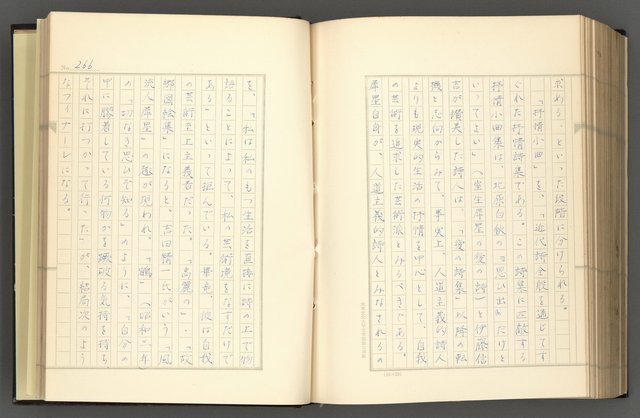 求める、といった段階に分けられる。
「抒情小曲」を、「近代詩全般を通じてす
ぐれた抒情詩集である。この詩集に匹敵する
抒情小曲集は、北原白秋の『思ひ出』だけと
いってよい」（室生犀星の愛の詩）と伊藤信
吉が讃美した詩人は、「愛の詩集」以降の転
機と志向からみて、事実上、人道主義的詩人
よりも現実的生活の抒情を中心として、自我
の芸術を追求した芸術派とみるべきである。
犀星自身が、人道主義的詩人とみなされるの
No. 266
を、「私は私のもつ生活を直接に詩の上で物
語ることによって、私の芸術境をなすだけで
ある」といって拒んでいる。畢竟、彼は自我
の芸術至上主義者だった。「高麗の」・「故
郷図絵集」になると、吉田精一氏がいう「風
流人犀星」の趣が現われ、「鶴」（昭和三年）
の「切なき思ひぞ知る」のように、「自分の
中に膠着している何物かを蹴破る気持を持ち
それに打つかって行った」が、結局次のよう
なフィナーレになる。